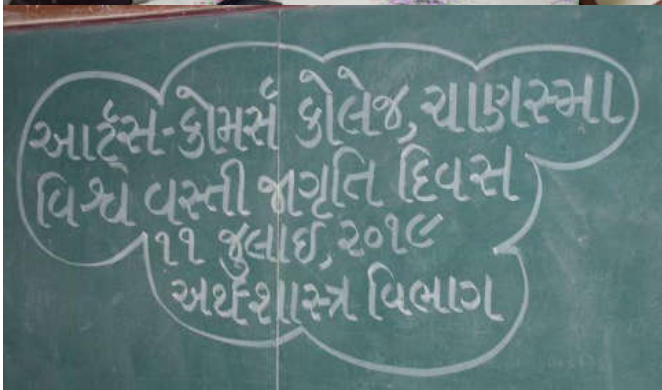 આર્ટ્સ-કોમર્સ કોલેજ, ચાણસ્મા
વિશ્વ વસ્તી જાગૃતિ દિવસ
૧૧ જુલાઈ, ૨૦૧૯
અર્થશાસ્ત્ર વિભાગ